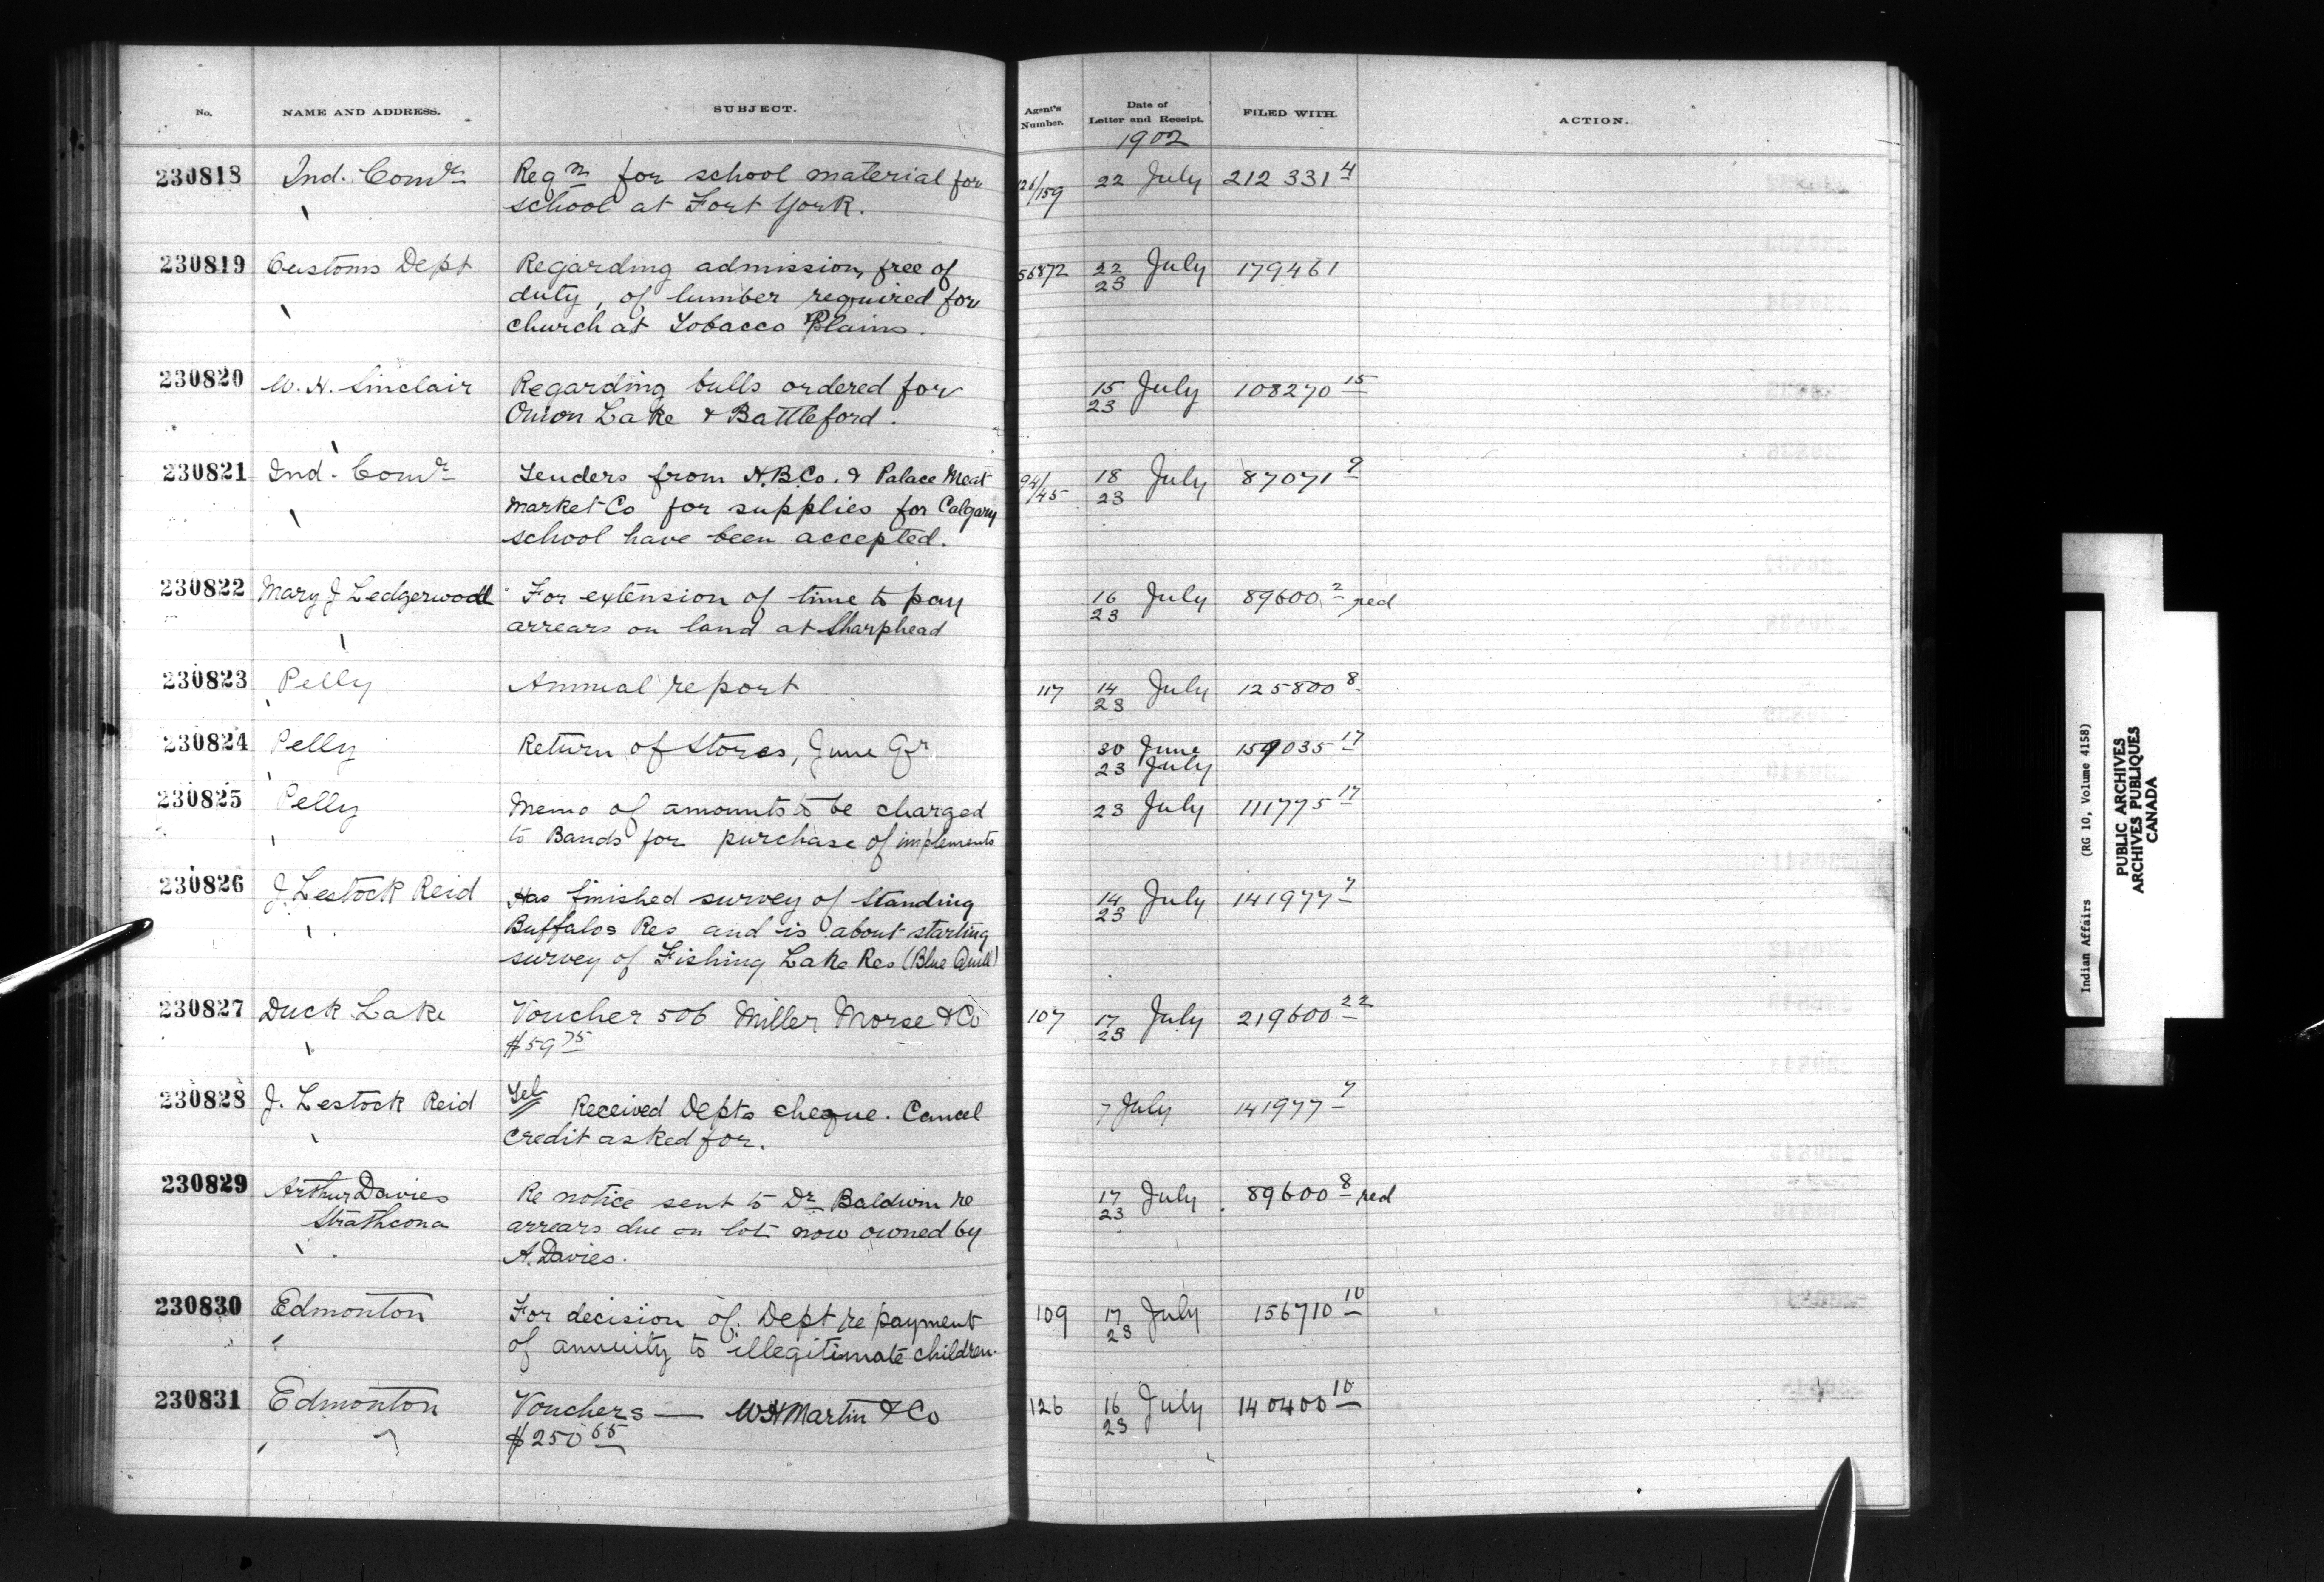 No.
NAME AND ADDRESS.
SUBJECT.
Agent's
Number.
Date of
Letter and Receipt.
1902
FILED WITH.
ACTION.
230818 Ind. Comr Reqn for school material for 126/159 22 July 212 331 4
school at Fort York.
230819 Customs Dept Regarding admission, free of 56872 22 July 179461
duty, of lumber required for 23
church at Tobacco Plains.
230820 W. H. Sinclair Regarding bulls ordered for 15 July 108270 15
Onion Lake & Battleford. 23
230821 Ind. Comr Tenders from H.B.Co. & Palace Meat 94/45 18 July 87071 9
Market Co for supplies for Calgary 23
school have been accepted.
230822 Mary J Ledgerwood For extension of time to pay 16 July 89600 2 red
arrears on land at Sharphead 23
230823 Pelly Annual report 117 14 July 125800 8
23
230824 Pelly Return of Stores, June Qr 30 June 159035 17
23 July
230825 Pelly Memo of amounts to be charged 23 July 111775 17
to Bands for purchase of implements
230826 J. Lestock Reid Has finished survey of Standing 14 July 141977 7
Buffalos Res and is about starting 23
survey of Fishing Lake Res (Blue Quill)
230827 Duck Lake Voucher 506 Miller Morse & Co 107 17 July 219600 22
$59 75 23
230828 J. Lestock Reid Tel Received Depts cheque. Cancel 7 July 141977 7
credit asked for.
230829 Arthur Davies Re notice sent to Dr Baldwin re 17 July 89600 8 red
Strathcona arrears due on lot now owned by 23
A. Davies.
230830 Edmonton For decision of Dept re payment 109 17 July 156710 10
of annuity to illegitimate children. 23
230831 Edmonton Vouchers — W H Martin & Co 126 16 July 140400 10
$250 65 23
Indian Affairs (RG 10, Volume 4158)
PUBLIC ARCHIVES
ARCHIVES PUBLIQUES
CANADA